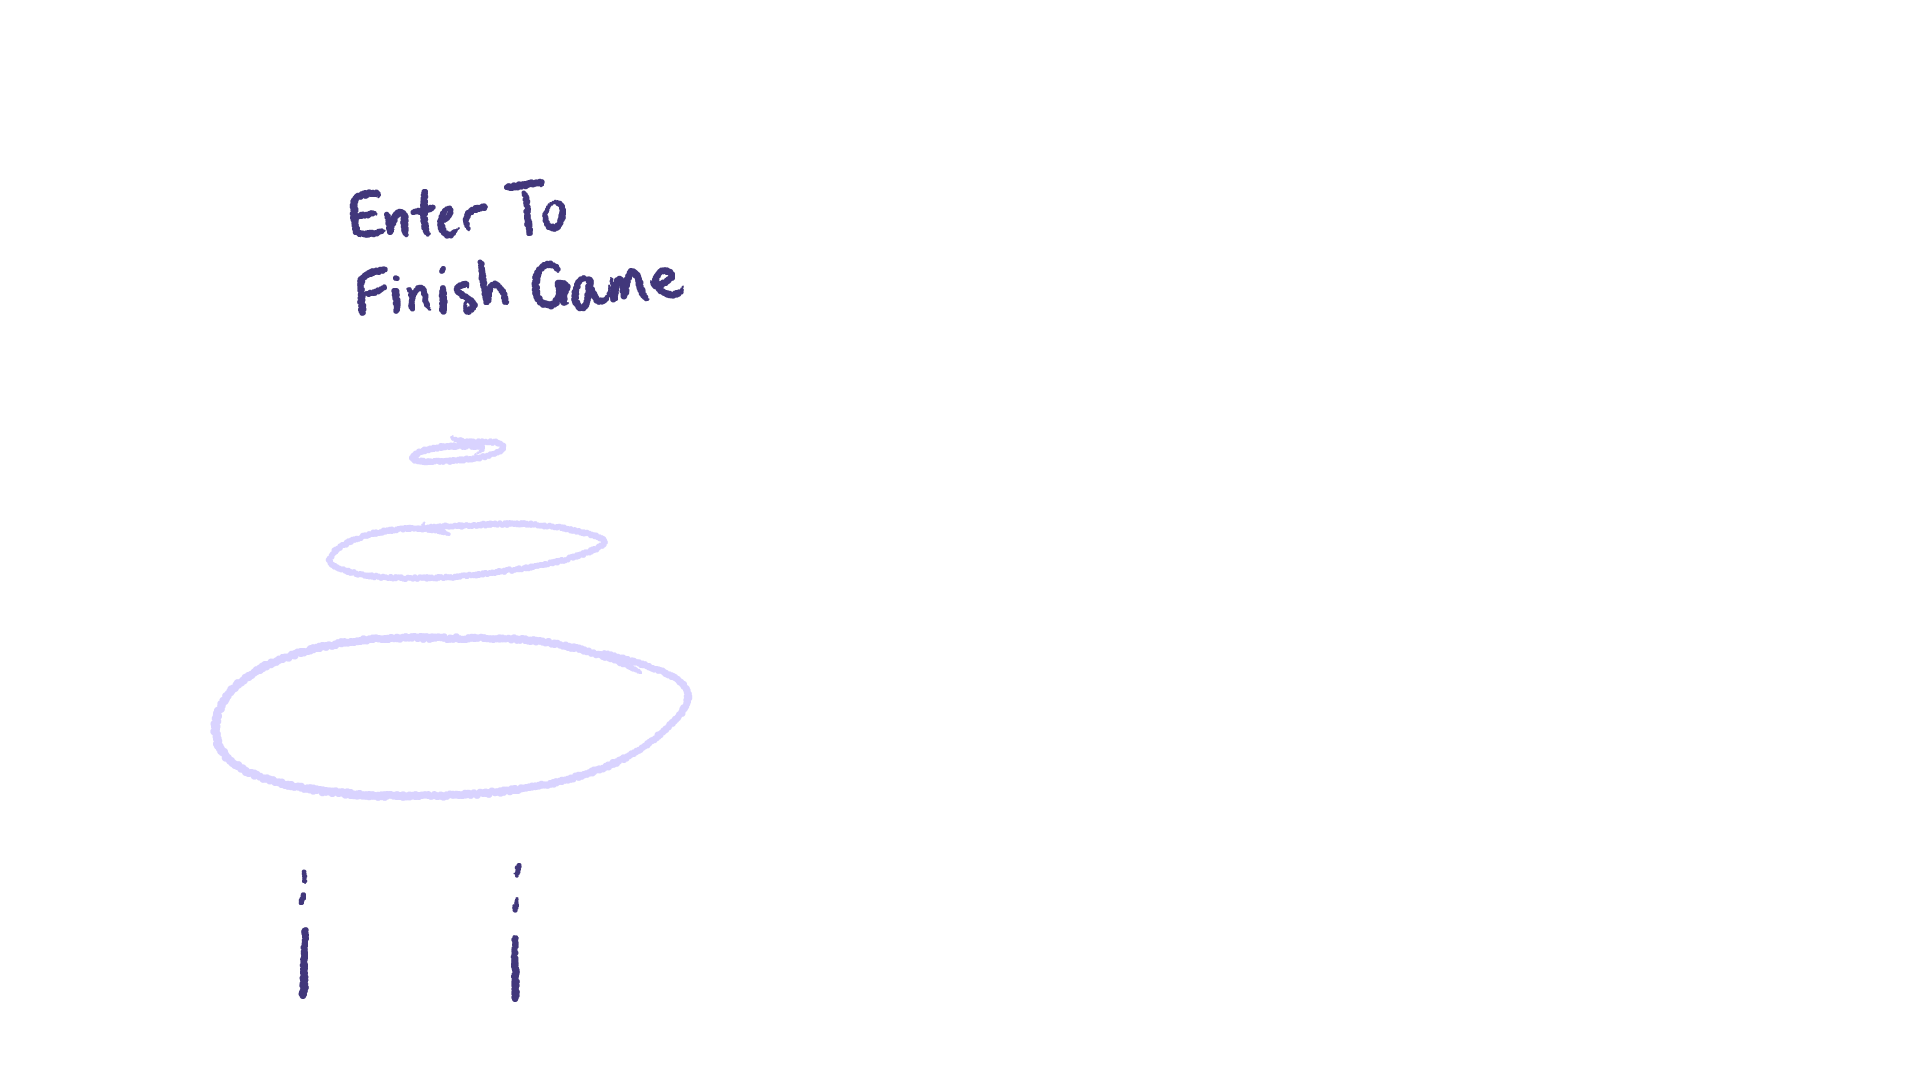 Enter To
Finish Game